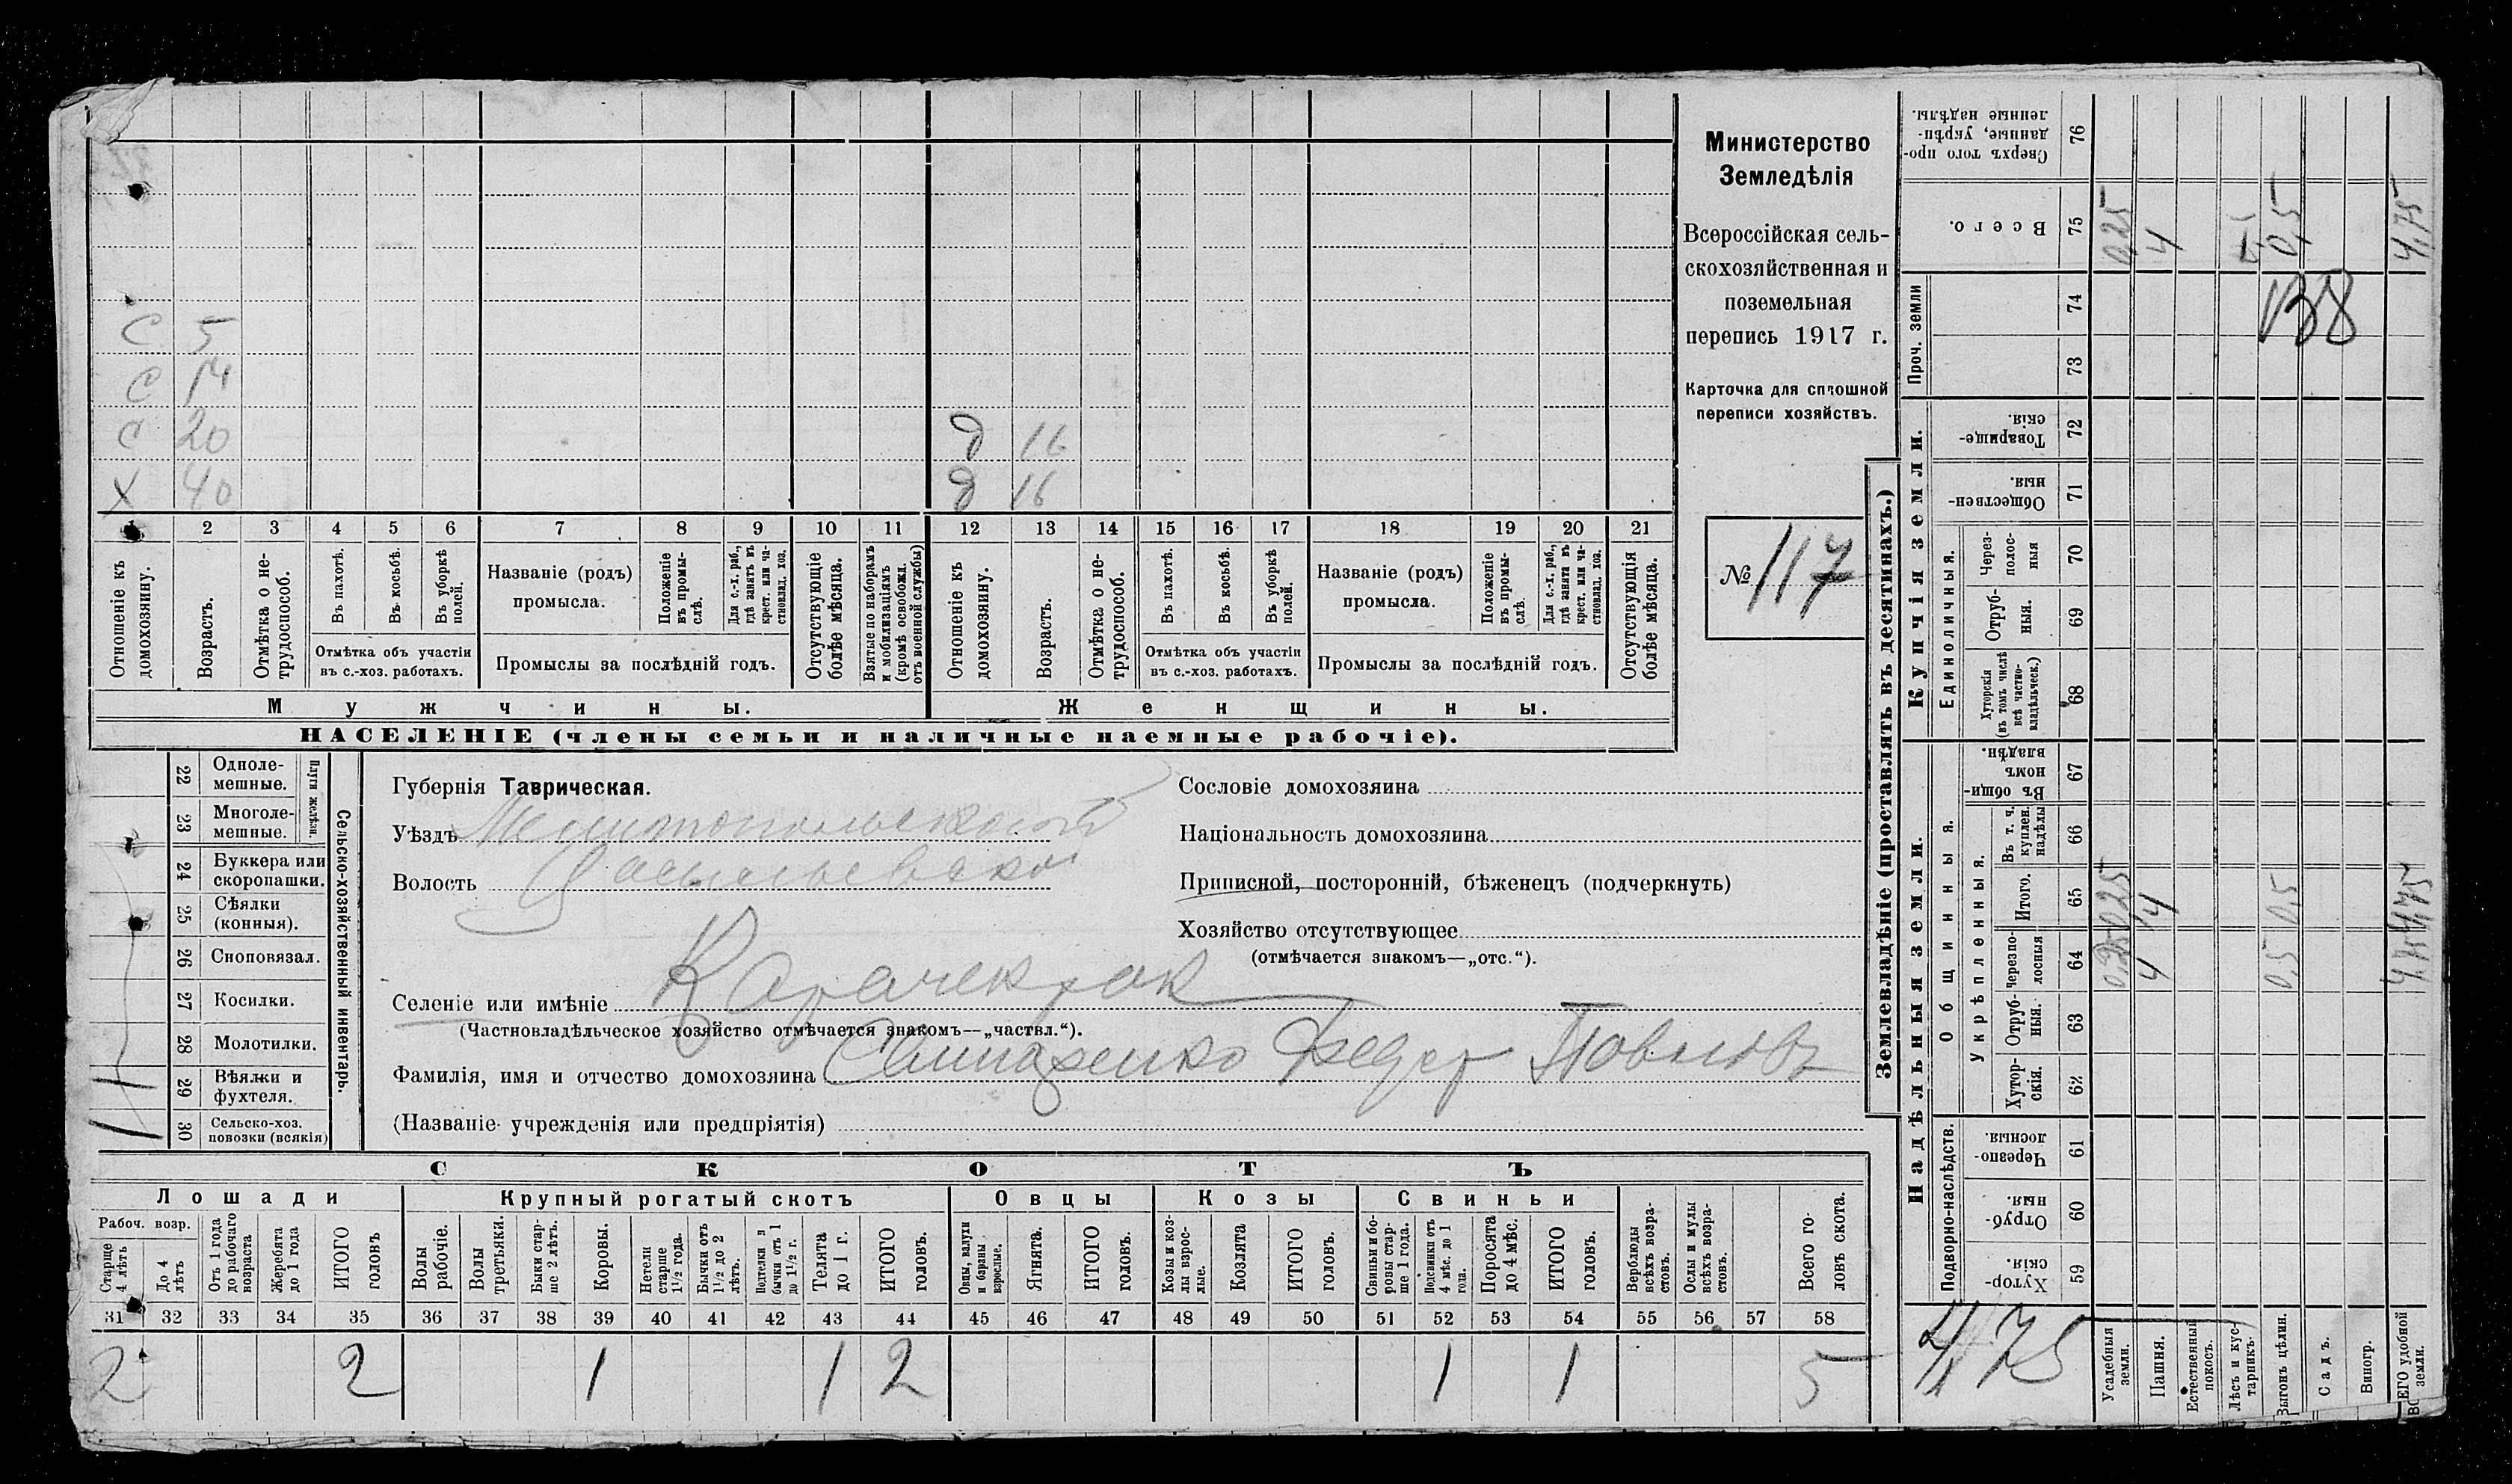 С 5
С 14
С 20
Х 40
д 16
д 16
1 2 3 4 5 6 7 8 9 10 11 12 13 14 15 16 17 18 19 20 21
Отношеніе къ домохозяину.
Возрастъ.
Отмѣтка о нетрудоспособ.
Въ пахотѣ.
Въ косьбѣ.
Въ уборкѣ полей.
Отмѣтка объ участіи
въ с.-хоз. работахъ.
Названіе (родъ)
промысла.
Положеніе въ промыслѣ.
Для с.-х. раб., гдѣ занятъ въ крест. или частновлад. хоз.
Промыслы за послѣдній годъ.
Отсутствующіе болѣе мѣсяца.
Взятые по наборамъ и мобилизаціямъ (кромѣ освобожд. отъ военной службы)
Отношеніе къ домохозяину.
Возрастъ.
Отмѣтка о нетрудоспособ.
Въ пахотѣ.
Въ косьбѣ.
Въ уборкѣ полей.
Отмѣтка объ участіи
въ с.-хоз. работахъ.
Названіе (родъ)
промысла.
Положеніе въ промыслѣ.
Для с.-х. раб., гдѣ занята въ крест. или частновлад. хоз.
Промыслы за послѣдній годъ.
Отсутствующія болѣе мѣсяца.
Мужчины.
Женщины.
НАСЕЛЕНІЕ (члены семьи и наличные наемные рабочіе).
Министерство
Земледѣлія
Всероссійская сель-
скохозяйственная и
поземельная
перепись 1917 г.
Карточка для сплошной
переписи хозяйствъ.
№ 117
22 Одноле-
мешные.
23 Многоле-
мешные.
Плуги желѣзн.
24 Буккера или
скоропашки.
25 Сѣялки
(конныя).
26 Сноповязал.
27 Косилки.
28 Молотилки.
29 Вѣялки и
фухтеля.
1
30 Сельско-хоз.
повозки (всякія)
1
Сельско-хозяйственный инвентарь.
Губернія Таврическая.
Уѣздъ Мелитопольскій
Волость Васильевская
Селеніе или имѣніе Карачекрак
(Частновладѣльческое хозяйство отмѣчается знакомъ—„частвл.“).
Фамилія, имя и отчество домохозяина Федор Павловъ
(Названіе учрежденія или предпріятія)
Сословіе домохозяина
Національность домохозяина
Приписной, посторонній, бѣженецъ (подчеркнуть)
Хозяйство отсутствующее
(отмѣчается знакомъ—„отс.“).
СКОТЪ
Лошади
Рабоч. возр.
Старше 4 лѣтъ
До 4 лѣтъ
Отъ 1 года до рабочаго возраста
Жеребята до 1 года
ИТОГО головъ
Крупный рогатый скотъ
Волы рабочіе.
Волы третьяки.
Быки старше 2 лѣтъ.
Коровы.
Нетели старше 1½ года.
Бычки отъ 1½ до 2 лѣтъ.
Подтелки и бычки отъ 1 до 1½ г.
Телята до 1 г.
ИТОГО головъ.
Овцы
Овцы, валухи и бараны взрослые.
Ягнята.
ИТОГО головъ.
Козы
Козы и козлы взрослые.
Козлята
ИТОГО головъ.
Свиньи
Свиньи и боровы старше 1 года.
Подсвинки отъ 4 мѣс. до 1 года.
Поросята до 4 мѣс.
ИТОГО головъ.
Верблюды всѣхъ возрастовъ.
Ослы и мулы всѣхъ возрастовъ.
Всего головъ скота.
31 32 33 34 35 36 37 38 39 40 41 42 43 44 45 46 47 48 49 50 51 52 53 54 55 56 57 58
2 2 1 1 2 1 1 5
Землевладѣніе (проставлять въ десятинахъ.)
Надѣльныя земли.
Купчія земли.
Проч. земли
Подворно-наслѣдств.
Общинныя.
Укрѣпленныя.
Единоличныя.
59 Хуторскія.
60 Отрубныя.
61 Черезполосныя.
62 Хуторскія.
63 Отрубныя.
64 Черезполосныя
65 Итого.
66 Въ т. ч. куплен. надѣлы
67 Въ общинномъ владѣн.
68 Хуторскія (въ томъ числѣ всѣ частновладѣльческ.)
69 Отрубныя.
70 Черезполосныя
71 Общественныя.
72 Товарищескія.
73
74
75 Всего.
76 Сверхъ того проданные, укрѣпленные надѣлы.
Усадебныя земли.
Пашня.
Естественный покосъ.
Лѣсъ и кустарникъ.
Выгонъ цѣлин.
Садъ.
Виногр.
ВСЕГО удобной земли.
0,25 4 0,5 4,75
138
0,25 4 0,5 4,75
0,25 4 0,5 4,75
4,75